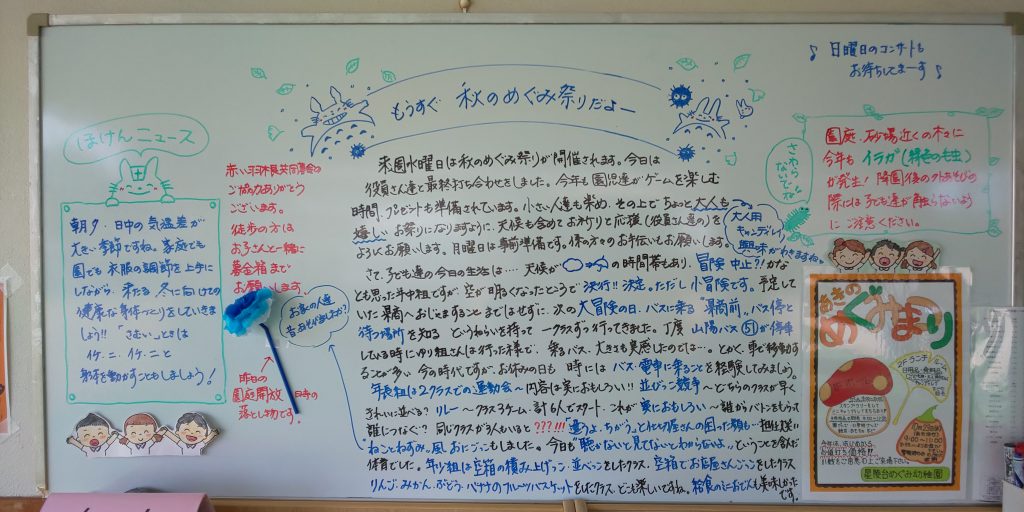 ♪ 日曜日のコンサートも
お待ちしてまーす♪
もうすぐ 秋のめぐみ祭りだよー
ほけんニュース
朝夕、日中の気温差が
大きい季節ですね。家庭でも
園でも衣服の調節を上手に
しながら、来たる冬に向けての
健康な身体づくりをしていきま
しょう!! 「さむい」ときは
イチ、ニ、イチ、ニと
身体を動かすこともしましょう!
赤い羽根共同募金の
ご協力ありがとう
ございます。
徒歩の方は
お子さんと一緒に
募金箱まで
お願いします
昨日の
園庭開放日時の
落とし物です。
来週水曜日は秋のめぐみ祭りが開催されます。今日は
役員さん達と最終打ち合わせをしました。今年も園児達がゲームを楽しむ
時間、プレゼントも準備されています。小さい人達も楽め、その上でちょっと大人も
嬉しいお祭りになりますように、天候も含めてお祈りと応援(役員さん達の)を
よろしくお願いします。月曜日は事前準備です。係の方々のお手伝いもお願いします。
大人用
キャンディレイ
興味がわきますね
さて、子ども達の今日の生活は…天候が
の時間帯もあり、冒険中止?!かな
とも思った年中組ですが、空が明るくなったところで決行!!決定。ただし小冒険です。予定して
次の大冒険の日、バスに乗る
バス停と
待つ場所を知る というねらいを持って 一クラスずつ行ってきました。丁度 山陽バス51が停車
している時にゆり組さんは行った様で、乗るバス、大きさも実感したのでは…。とかく、車で移動す
ることが多い今の時代ですが、お休みの日も 時にはバス・電車に乗ることを経験してみましょう。
年長組は2クラスでの運動会〜内容は実におもしろい!! 並びっこ競争〜どちらのクラスが早く
きれいに並べる? リレー〜クラス3チーム、計6人でスタート。これが実におもしろい〜誰からバトンをもらって
誰につなぐ? 同じクラスが3人もいると???!!!
ねことねずみ。風おにごっこもしました。今日も聴かないと見てないとわからないよ。ということを含んだ
体育でした。年少組は空箱の積み上げっこ、並べっこをしたクラス、空箱でお店屋さんごっこをしたクラス
りんご、みかん、ぶどう、バナナのフルーツバスケットをしたクラス、どこも楽しいですね。給食のミニおでんも美味しかった
です。
さわら
ないでね
園庭、砂場近くの木々に
今年もイラガ(緑色の毛虫)
が発生! 降園後の外あそびの
際には子ども達が触らないよう
にご注意ください。
あきの
めぐみまつり
星陵台めぐみ幼稚園